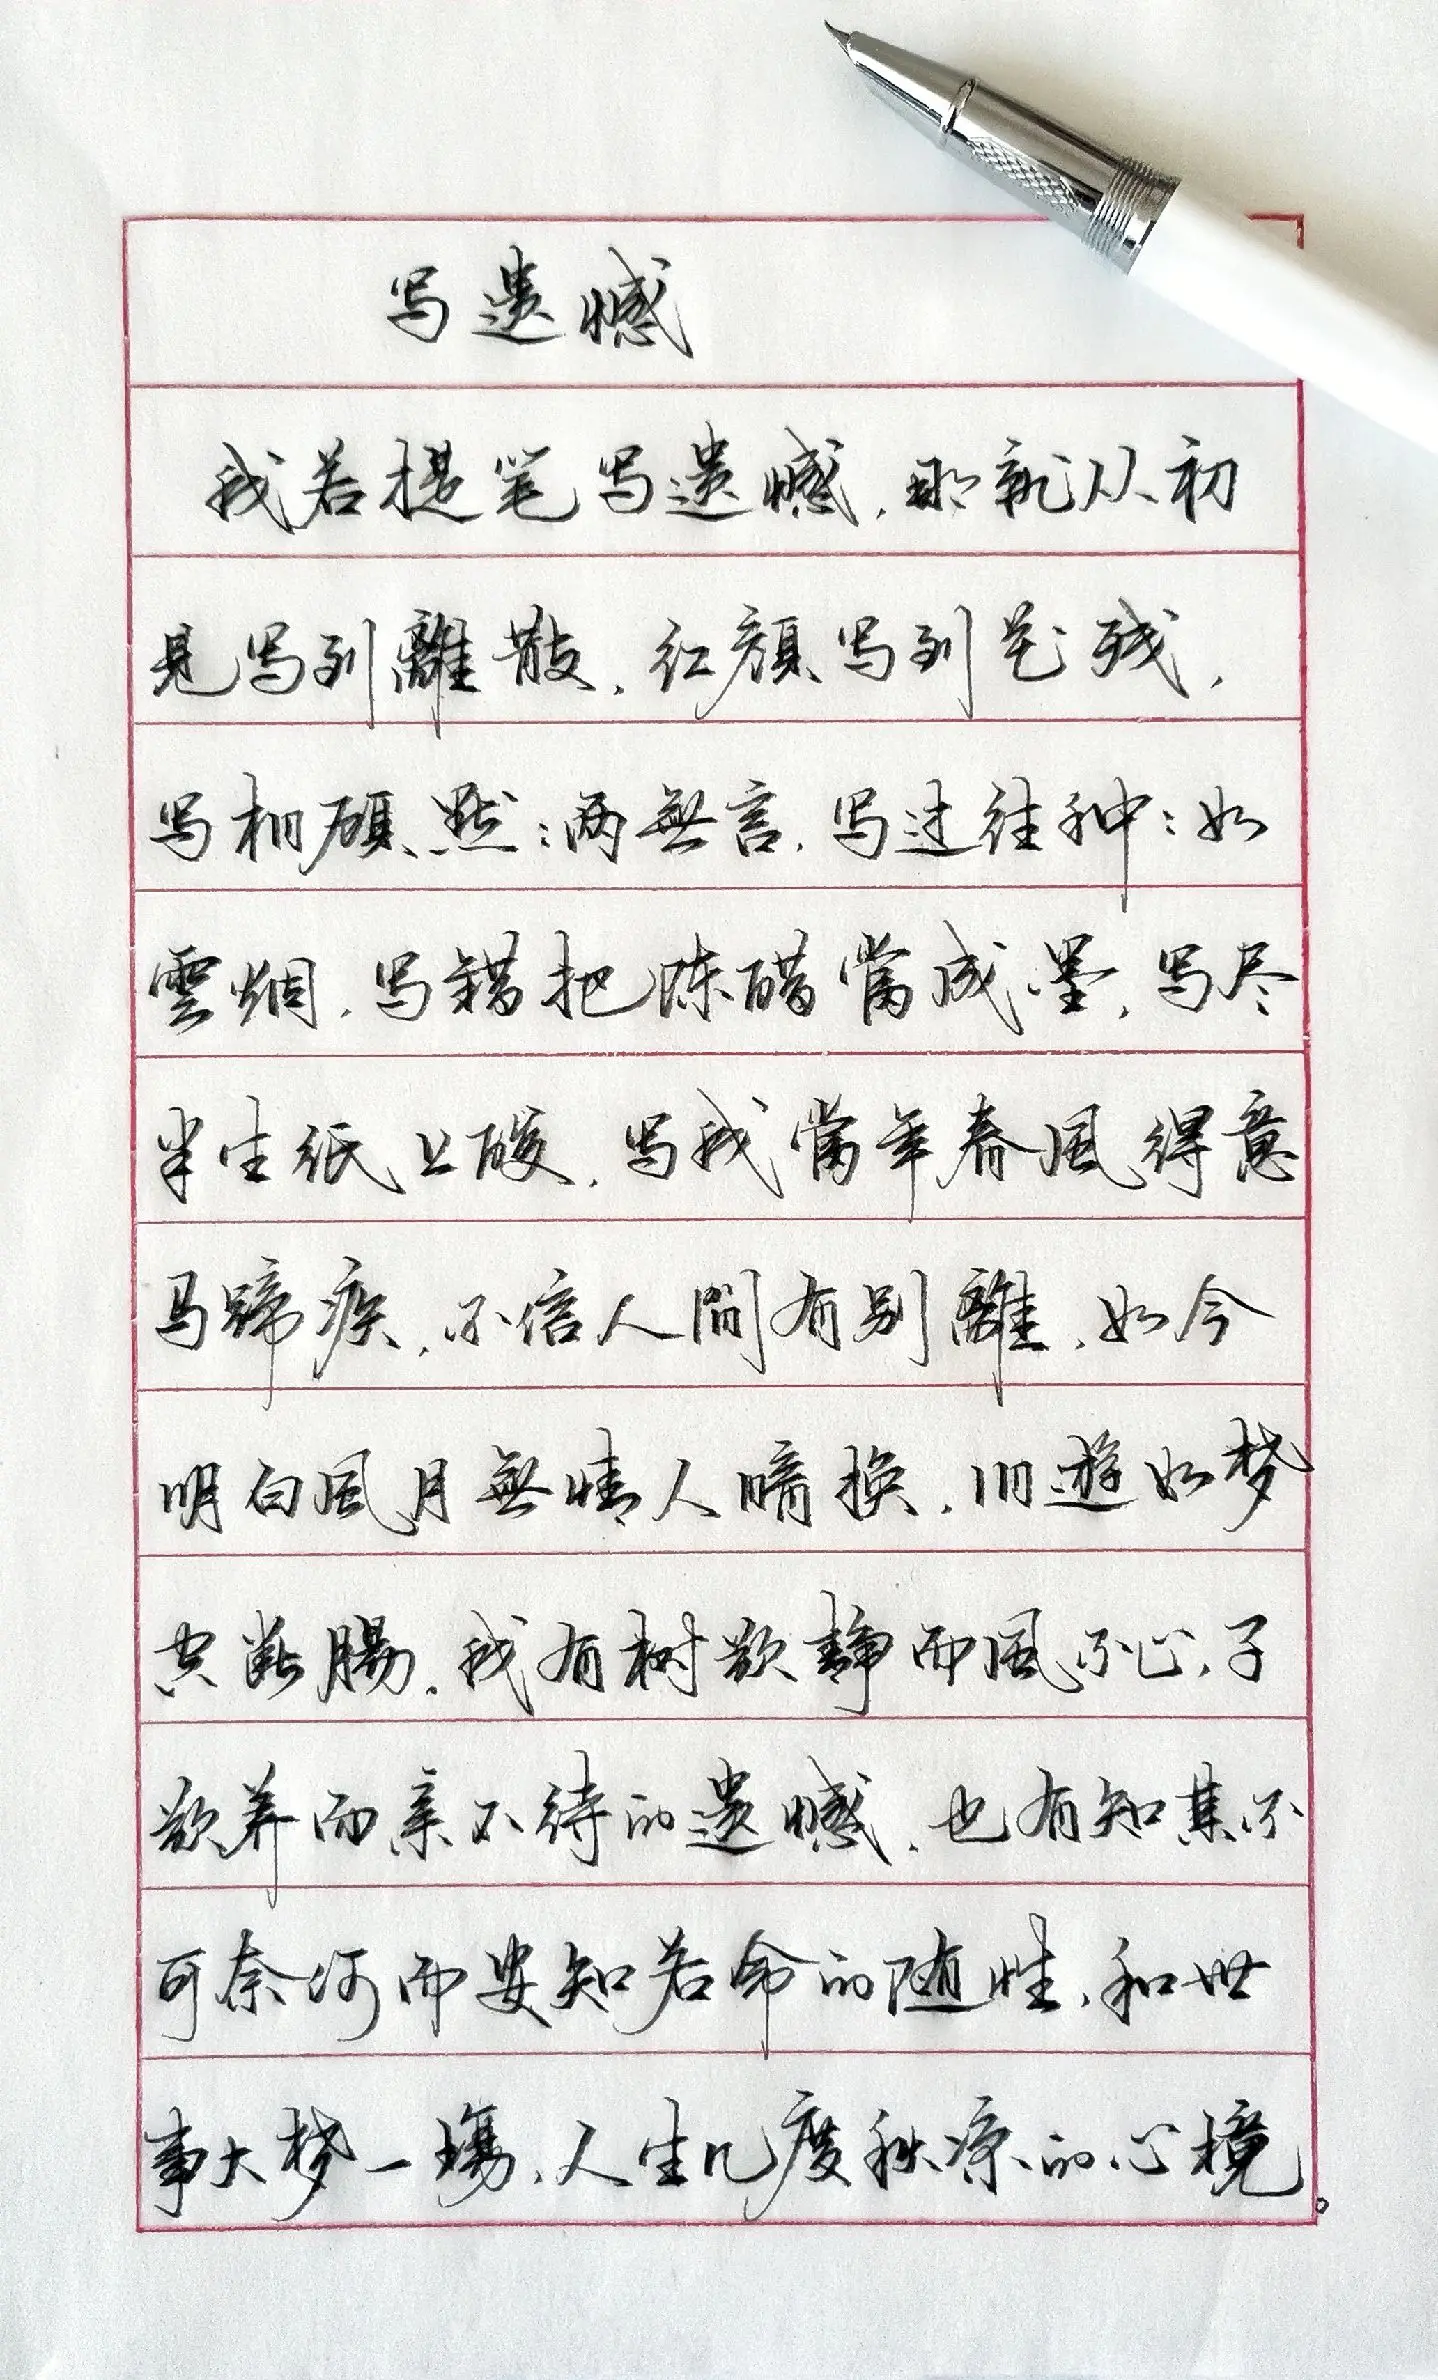 写遗憾
我若提笔写遗憾，那就从初
见写到離散，红颜写到花残，
写相顾默默两無言，写过往种种如
雲烟，写錯把陈醋當成墨，写尽
半生纸上酸，写我當年春風得意
马蹄疾，不信人間有别離，如今
明白風月無情人暗换，旧遊如梦
空断腸，我有树欲静而風不止，子
欲养而亲不待的遗憾，也有知其不
可奈何而安知若命的随性，和世
事大梦一場，人生几度秋凉的心境。